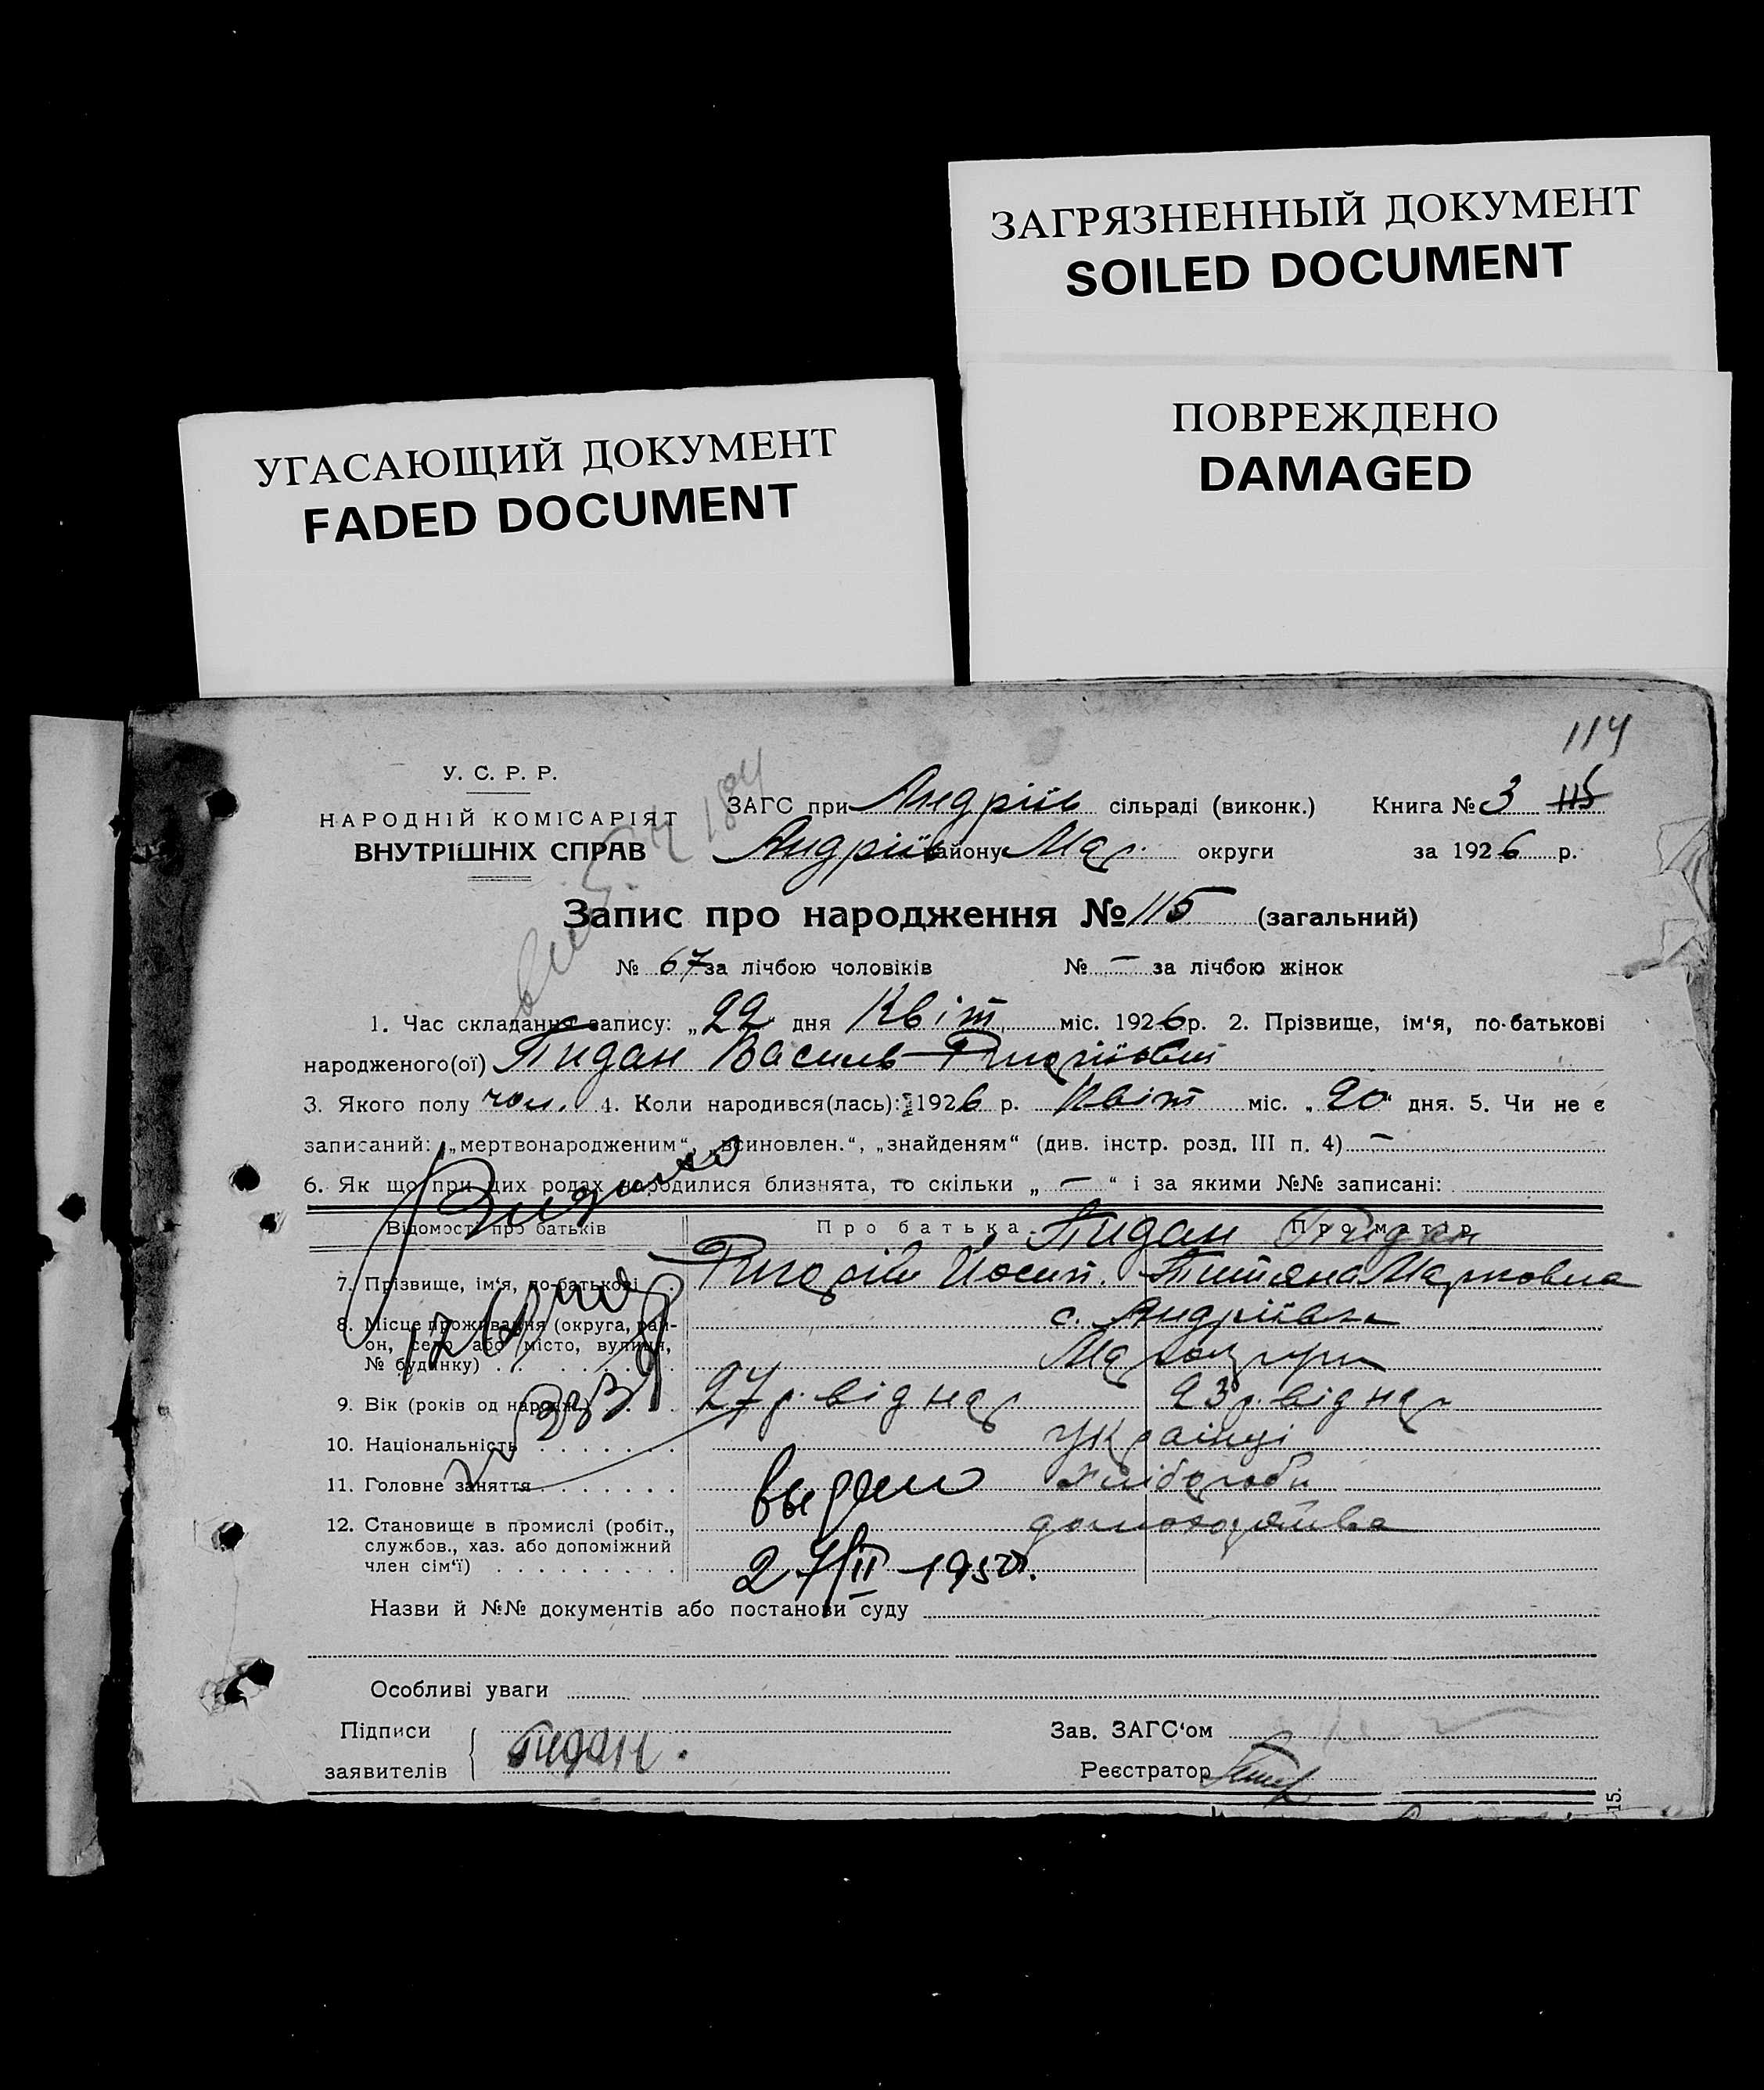 ЗАГРЯЗНЕННЫЙ ДОКУМЕНТ
SOILED DOCUMENT
УГАСАЮЩИЙ ДОКУМЕНТ
FADED DOCUMENT
ПОВРЕЖДЕНО
DAMAGED
114
У. С. Р. Р.
НАРОДНІЙ КОМІСАРІЯТ
ВНУТРІШНІХ СПРАВ
ЗАГС при Андріїв сільраді (виконк.) Книга № 3 115
Андріїв району Мар. округи за 1926 р.
Запис про народження № 115 (загальний)
№ 67 за лічбою чоловіків № — за лічбою жінок
1. Час складання запису: „22“ дня Квіт. міс. 1926 р. 2. Прізвище, ім'я, по-батькові
народженого(ої) Пидан Василь
3. Якого полу чол. 4. Коли народився(лась): 1926 р. Квіт міс. „20“ дня. 5. Чи не є
записаний: „мертвонародженим“, „всиновлен.“, „знайденям“ (див. інстр. розд. III п. 4) —
6. Як що при цих родах народилися близнята, то скільки „—“ і за якими №№ записані:
Відомості про батьків Про батька Пидан Про матір Пидан
7. Прізвище, ім'я, по-батькові Йосип. Титяна Марковна
8. Місце проживання (округа, рай-
он, село або місто, вулиця,
№ будинку)
с. Андріївка
Мар округи
9. Вік (років од народж.) 27 р. від нар 23 р. від нар
10. Національність українці
11. Головне заняття Хлібороби
12. Становище в промислі (робіт.,
службов., хаз. або допоміжний
член сім'ї)
выдано
27/II 1950г.
Назви й №№ документів або постанови суду
Особливі уваги
Підписи
заявителів
Пидан.
Зав. ЗАГС'ом
Реєстратор
15.